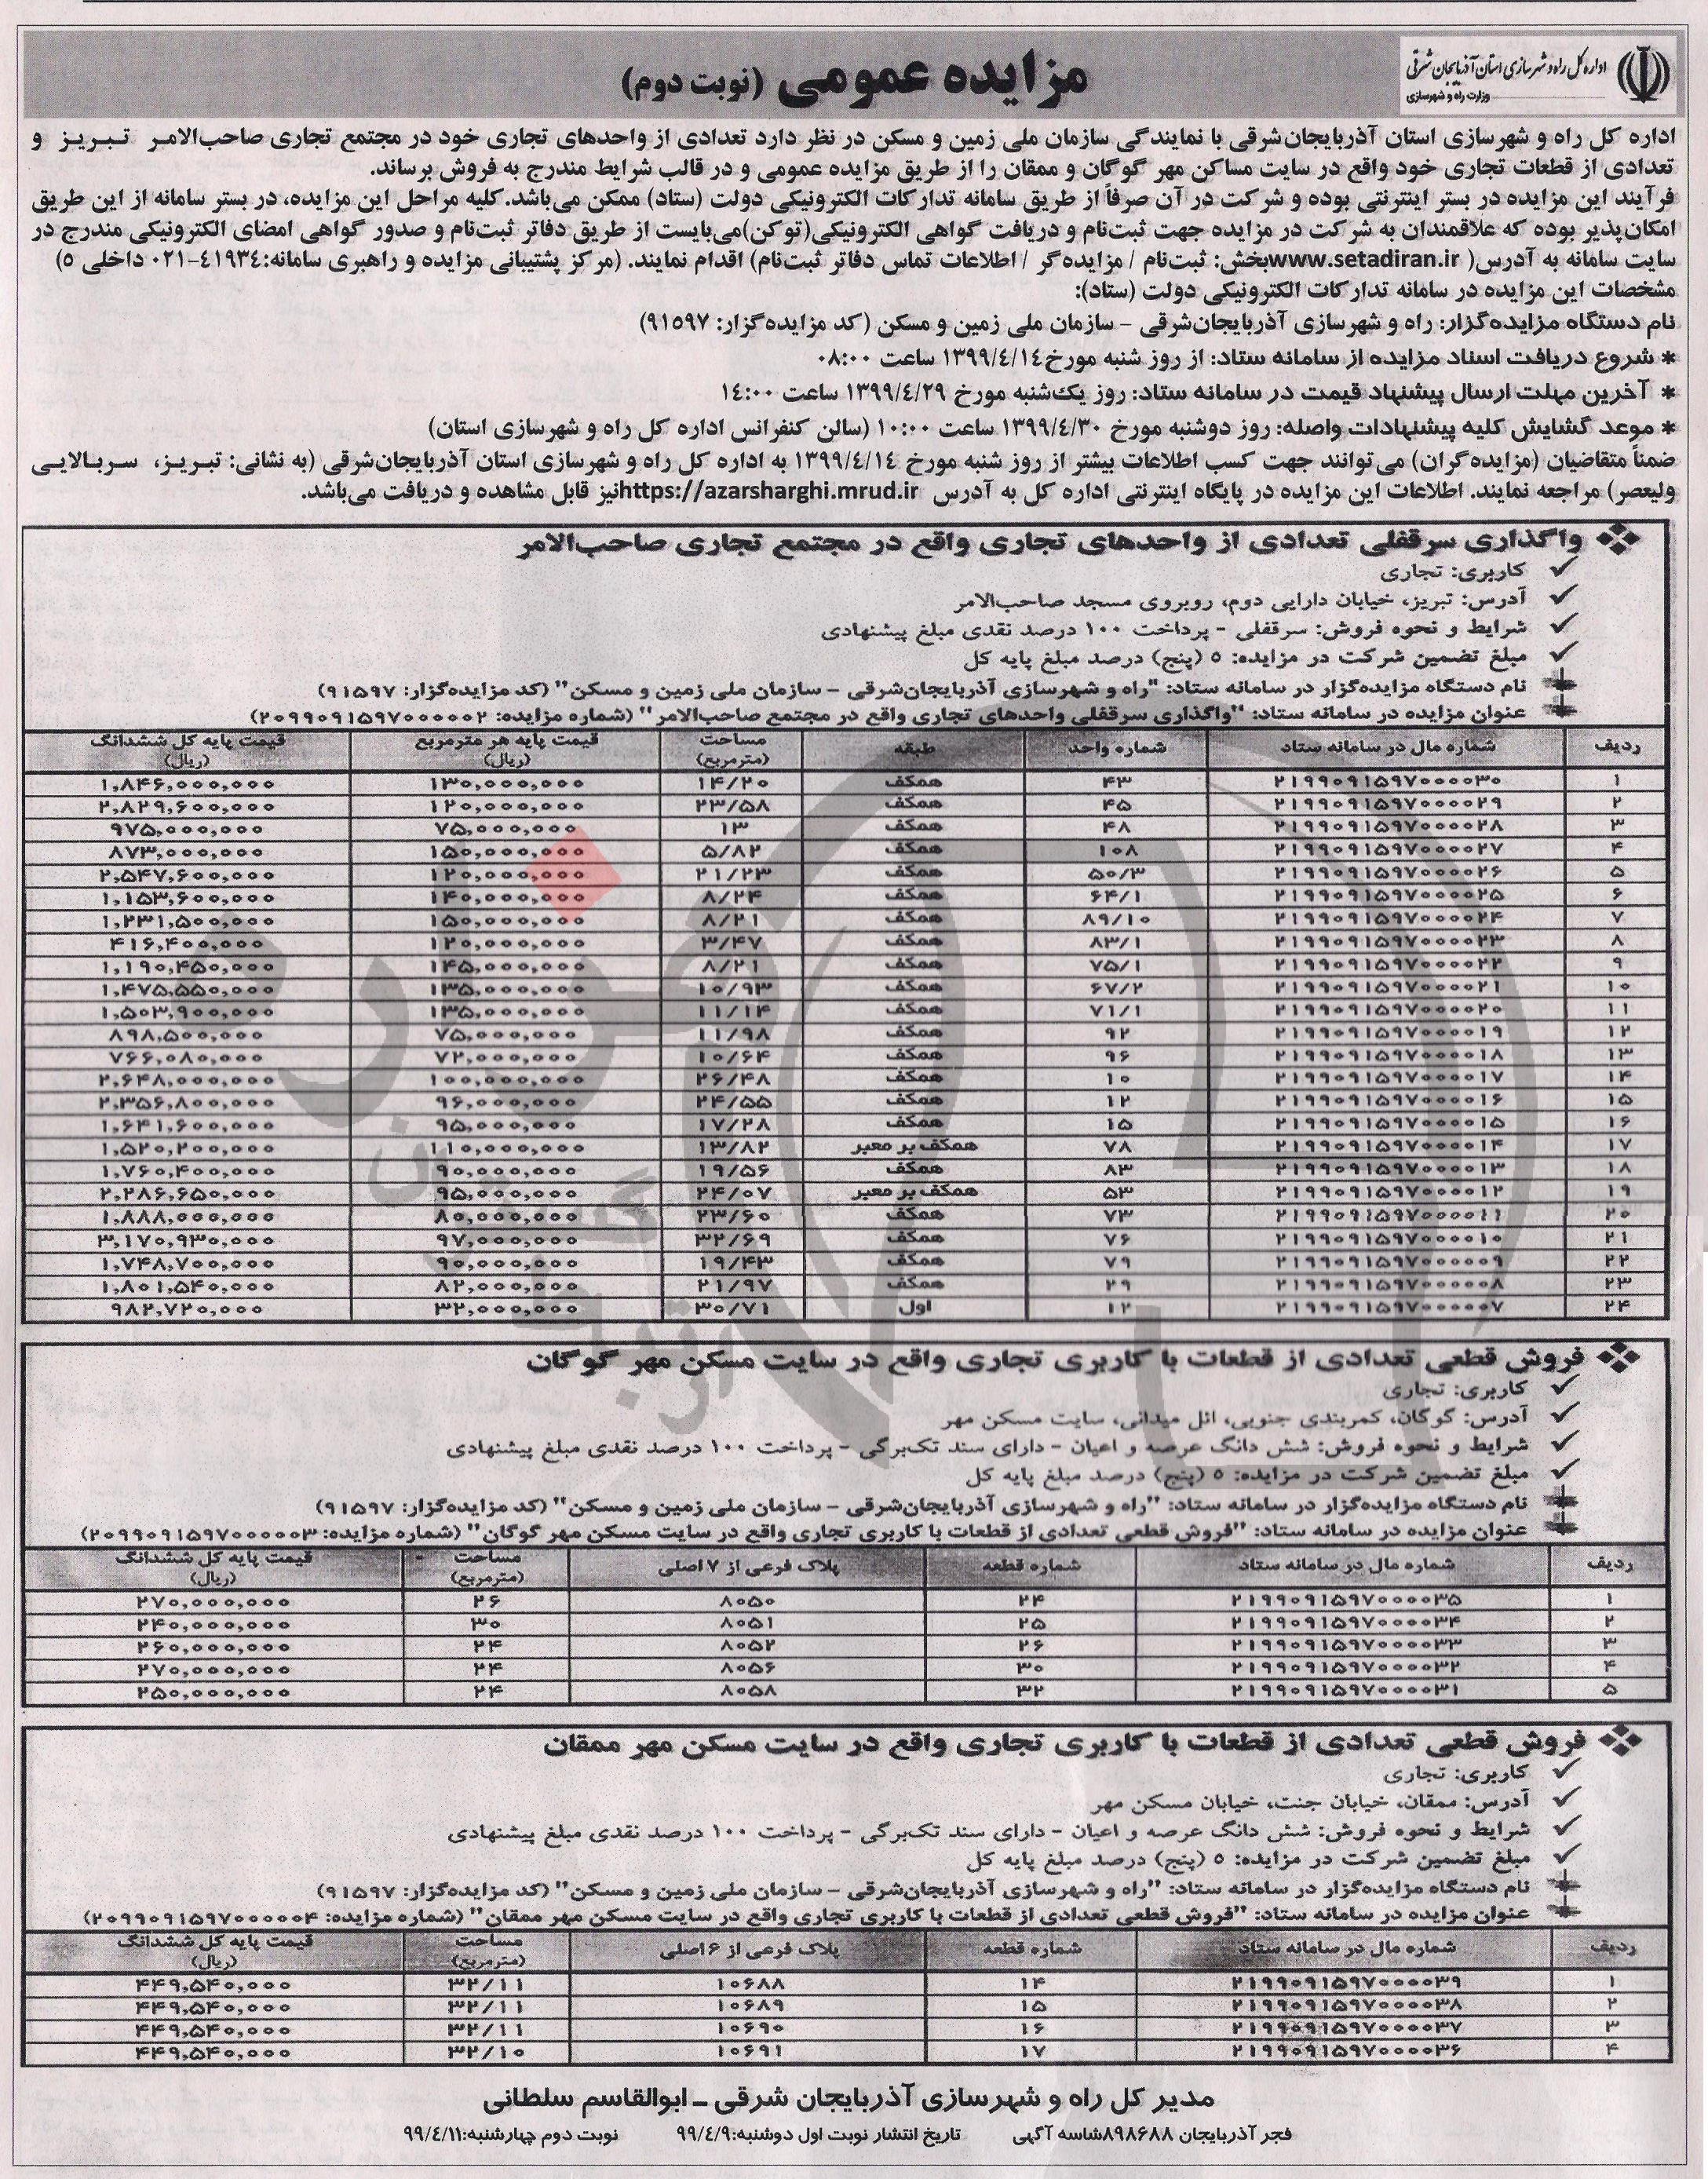 اداره کل راه و شهرسازی استان آذربایجان شرقی
وزارت راه و شهرسازی
مزایده عمومی (نوبت دوم)
اداره کل راه و شهرسازی استان آذربایجان‌شرقی با نمایندگی سازمان ملی زمین و مسکن در نظر دارد تعدادی از واحدهای تجاری خود در مجتمع تجاری صاحب‌الامر تبریز و
تعدادی از قطعات تجاری خود واقع در سایت مساکن مهر گوگان و ممقان را از طریق مزایده عمومی و در قالب شرایط مندرج به فروش برساند.
فرآیند این مزایده در بستر اینترنتی بوده و شرکت در آن صرفاً از طریق سامانه تدارکات الکترونیکی دولت (ستاد) ممکن می‌باشد. کلیه مراحل این مزایده، در بستر سامانه از این طریق
امکان‌پذیر بوده که علاقمندان به شرکت در مزایده جهت ثبت‌نام و دریافت گواهی الکترونیکی(توکن)می‌بایست از طریق دفاتر ثبت‌نام و صدور گواهی امضای الکترونیکی مندرج در
سایت سامانه به آدرس( www.setadiran.irبخش: ثبت‌نام / مزایده‌گر / اطلاعات تماس دفاتر ثبت‌نام) اقدام نمایند. (مرکز پشتیبانی مزایده و راهبری سامانه:۴۱۹۳۴-۰۲۱ داخلی ۵)
مشخصات این مزایده در سامانه تدارکات الکترونیکی دولت (ستاد):
نام دستگاه مزایده‌گزار: راه و شهرسازی آذربایجان‌شرقی - سازمان ملی زمین و مسکن (کد مزایده‌گزار: ۹۱۵۹۷)
* شروع دریافت اسناد مزایده از سامانه ستاد: از روز شنبه مورخ۱۳۹۹/۴/۱۴ ساعت ۰۸:۰۰
* آخرین مهلت ارسال پیشنهاد قیمت در سامانه ستاد: روز یک‌شنبه مورخ ۱۳۹۹/۴/۲۹ ساعت ۱۴:۰۰
* موعد گشایش کلیه پیشنهادات واصله: روز دوشنبه مورخ ۱۳۹۹/۴/۳۰ ساعت ۱۰:۰۰ (سالن کنفرانس اداره کل راه و شهرسازی استان)
ضمناً متقاضیان (مزایده‌گران) می‌توانند جهت کسب اطلاعات بیشتر از روز شنبه مورخ ۱۳۹۹/۴/۱۴ به اداره کل راه و شهرسازی استان آذربایجان‌شرقی (به نشانی: تبریز، سربالایی
ولیعصر) مراجعه نمایند. اطلاعات این مزایده در پایگاه اینترنتی اداره کل به آدرس https://azarsharghi.mrud.irنیز قابل مشاهده و دریافت می‌باشد.
واگذاری سرقفلی تعدادی از واحدهای تجاری واقع در مجتمع تجاری صاحب‌الامر
✓ کاربری: تجاری
✓ آدرس: تبریز، خیابان دارایی دوم، روبروی مسجد صاحب‌الامر
✓ شرایط و نحوه فروش: سرقفلی - پرداخت ۱۰۰ درصد نقدی مبلغ پیشنهادی
✓ مبلغ تضمین شرکت در مزایده: ۵ (پنج) درصد مبلغ پایه کل
نام دستگاه مزایده‌گزار در سامانه ستاد: "راه و شهرسازی آذربایجان‌شرقی - سازمان ملی زمین و مسکن" (کد مزایده‌گزار: ۹۱۵۹۷)
عنوان مزایده در سامانه ستاد: "واگذاری سرقفلی واحدهای تجاری واقع در مجتمع صاحب‌الامر" (شماره مزایده: ۲۰۹۹۰۹۱۵۹۷۰۰۰۰۰۲)
ردیف شماره مال در سامانه ستاد شماره واحد طبقه مساحت (مترمربع) قیمت پایه هر مترمربع (ریال) قیمت پایه کل ششدانگ (ریال)
۱ ۲۱۹۹۰۹۱۵۹۷۰۰۰۰۳۰ ۴۳ همکف ۱۴/۲۰ ۱۳۰,۰۰۰,۰۰۰ ۱,۸۴۶,۰۰۰,۰۰۰
۲ ۲۱۹۹۰۹۱۵۹۷۰۰۰۰۲۹ ۴۵ همکف ۲۳/۵۸ ۱۲۰,۰۰۰,۰۰۰ ۲,۸۲۹,۶۰۰,۰۰۰
۳ ۲۱۹۹۰۹۱۵۹۷۰۰۰۰۲۸ ۴۸ همکف ۱۳ ۷۵,۰۰۰,۰۰۰ ۹۷۵,۰۰۰,۰۰۰
۴ ۲۱۹۹۰۹۱۵۹۷۰۰۰۰۲۷ ۱۰۸ همکف ۵/۸۲ ۱۵۰,۰۰۰,۰۰۰ ۸۷۳,۰۰۰,۰۰۰
۵ ۲۱۹۹۰۹۱۵۹۷۰۰۰۰۲۶ ۵۰/۳ همکف ۲۱/۲۳ ۱۲۰,۰۰۰,۰۰۰ ۲,۵۴۷,۶۰۰,۰۰۰
۶ ۲۱۹۹۰۹۱۵۹۷۰۰۰۰۲۵ ۶۴/۱ همکف ۸/۲۴ ۱۴۰,۰۰۰,۰۰۰ ۱,۱۵۳,۶۰۰,۰۰۰
۷ ۲۱۹۹۰۹۱۵۹۷۰۰۰۰۲۴ ۸۹/۱۰ همکف ۸/۲۱ ۱۵۰,۰۰۰,۰۰۰ ۱,۲۳۱,۵۰۰,۰۰۰
۸ ۲۱۹۹۰۹۱۵۹۷۰۰۰۰۲۳ ۸۳/۱ همکف ۳/۴۷ ۱۲۰,۰۰۰,۰۰۰ ۴۱۶,۴۰۰,۰۰۰
۹ ۲۱۹۹۰۹۱۵۹۷۰۰۰۰۲۲ ۷۵/۱ همکف ۸/۲۱ ۱۴۵,۰۰۰,۰۰۰ ۱,۱۹۰,۴۵۰,۰۰۰
۱۰ ۲۱۹۹۰۹۱۵۹۷۰۰۰۰۲۱ ۶۷/۲ همکف ۱۰/۹۳ ۱۳۵,۰۰۰,۰۰۰ ۱,۴۷۵,۵۵۰,۰۰۰
۱۱ ۲۱۹۹۰۹۱۵۹۷۰۰۰۰۲۰ ۷۱/۱ همکف ۱۱/۱۴ ۱۳۵,۰۰۰,۰۰۰ ۱,۵۰۳,۹۰۰,۰۰۰
۱۲ ۲۱۹۹۰۹۱۵۹۷۰۰۰۰۱۹ ۹۲ همکف ۱۱/۹۸ ۷۵,۰۰۰,۰۰۰ ۸۹۸,۵۰۰,۰۰۰
۱۳ ۲۱۹۹۰۹۱۵۹۷۰۰۰۰۱۸ ۹۶ همکف ۱۰/۶۴ ۷۲,۰۰۰,۰۰۰ ۷۶۶,۰۸۰,۰۰۰
۱۴ ۲۱۹۹۰۹۱۵۹۷۰۰۰۰۱۷ ۱۰ همکف ۲۶/۴۸ ۱۰۰,۰۰۰,۰۰۰ ۲,۶۴۸,۰۰۰,۰۰۰
۱۵ ۲۱۹۹۰۹۱۵۹۷۰۰۰۰۱۶ ۱۲ همکف ۲۴/۵۵ ۹۶,۰۰۰,۰۰۰ ۲,۳۵۶,۸۰۰,۰۰۰
۱۶ ۲۱۹۹۰۹۱۵۹۷۰۰۰۰۱۵ ۱۵ همکف ۱۷/۲۸ ۹۵,۰۰۰,۰۰۰ ۱,۶۴۱,۶۰۰,۰۰۰
۱۷ ۲۱۹۹۰۹۱۵۹۷۰۰۰۰۱۴ ۷۸ همکف بر معبر ۱۳/۸۲ ۱۱۰,۰۰۰,۰۰۰ ۱,۵۲۰,۲۰۰,۰۰۰
۱۸ ۲۱۹۹۰۹۱۵۹۷۰۰۰۰۱۳ ۸۳ همکف ۱۹/۵۶ ۹۰,۰۰۰,۰۰۰ ۱,۷۶۰,۴۰۰,۰۰۰
۱۹ ۲۱۹۹۰۹۱۵۹۷۰۰۰۰۱۲ ۵۳ همکف بر معبر ۲۴/۰۷ ۹۵,۰۰۰,۰۰۰ ۲,۲۸۶,۶۵۰,۰۰۰
۲۰ ۲۱۹۹۰۹۱۵۹۷۰۰۰۰۱۱ ۷۳ همکف ۲۳/۶۰ ۸۰,۰۰۰,۰۰۰ ۱,۸۸۸,۰۰۰,۰۰۰
۲۱ ۲۱۹۹۰۹۱۵۹۷۰۰۰۰۱۰ ۷۶ همکف ۳۲/۶۹ ۹۷,۰۰۰,۰۰۰ ۳,۱۷۰,۹۳۰,۰۰۰
۲۲ ۲۱۹۹۰۹۱۵۹۷۰۰۰۰۰۹ ۷۹ همکف ۱۹/۴۳ ۹۰,۰۰۰,۰۰۰ ۱,۷۴۸,۷۰۰,۰۰۰
۲۳ ۲۱۹۹۰۹۱۵۹۷۰۰۰۰۰۸ ۲۹ همکف ۲۱/۹۷ ۸۲,۰۰۰,۰۰۰ ۱,۸۰۱,۵۴۰,۰۰۰
۲۴ ۲۱۹۹۰۹۱۵۹۷۰۰۰۰۰۷ ۱۲ اول ۳۰/۷۱ ۳۲,۰۰۰,۰۰۰ ۹۸۲,۷۲۰,۰۰۰
فروش قطعی تعدادی از قطعات با کاربری تجاری واقع در سایت مسکن مهر گوگان
✓ کاربری: تجاری
✓ آدرس: گوگان، کمربندی جنوبی، ائل میدانی، سایت مسکن مهر
✓ شرایط و نحوه فروش: شش دانگ عرصه و اعیان - دارای سند تک‌برگی - پرداخت ۱۰۰ درصد نقدی مبلغ پیشنهادی
✓ مبلغ تضمین شرکت در مزایده: ۵ (پنج) درصد مبلغ پایه کل
نام دستگاه مزایده‌گزار در سامانه ستاد: "راه و شهرسازی آذربایجان‌شرقی - سازمان ملی زمین و مسکن" (کد مزایده‌گزار: ۹۱۵۹۷)
عنوان مزایده در سامانه ستاد: "فروش قطعی تعدادی از قطعات با کاربری تجاری واقع در سایت مسکن مهر گوگان" (شماره مزایده: ۲۰۹۹۰۹۱۵۹۷۰۰۰۰۰۳)
ردیف شماره مال در سامانه ستاد شماره قطعه پلاک فرعی از ۷ اصلی مساحت (مترمربع) قیمت پایه کل ششدانگ (ریال)
۱ ۲۱۹۹۰۹۱۵۹۷۰۰۰۰۳۵ ۲۴ ۸۰۵۰ ۲۶ ۲۷۰,۰۰۰,۰۰۰
۲ ۲۱۹۹۰۹۱۵۹۷۰۰۰۰۳۴ ۲۵ ۸۰۵۱ ۳۰ ۲۴۰,۰۰۰,۰۰۰
۳ ۲۱۹۹۰۹۱۵۹۷۰۰۰۰۳۳ ۲۶ ۸۰۵۲ ۲۴ ۲۶۰,۰۰۰,۰۰۰
۴ ۲۱۹۹۰۹۱۵۹۷۰۰۰۰۳۲ ۳۰ ۸۰۵۶ ۲۴ ۲۷۰,۰۰۰,۰۰۰
۵ ۲۱۹۹۰۹۱۵۹۷۰۰۰۰۳۱ ۳۲ ۸۰۵۸ ۲۴ ۲۵۰,۰۰۰,۰۰۰
فروش قطعی تعدادی از قطعات با کاربری تجاری واقع در سایت مسکن مهر ممقان
✓ کاربری: تجاری
✓ آدرس: ممقان، خیابان جنت، خیابان مسکن مهر
✓ شرایط و نحوه فروش: شش دانگ عرصه و اعیان - دارای سند تک‌برگی - پرداخت ۱۰۰ درصد نقدی مبلغ پیشنهادی
✓ مبلغ تضمین شرکت در مزایده: ۵ (پنج) درصد مبلغ پایه کل
نام دستگاه مزایده‌گزار در سامانه ستاد: "راه و شهرسازی آذربایجان‌شرقی - سازمان ملی زمین و مسکن" (کد مزایده‌گزار: ۹۱۵۹۷)
عنوان مزایده در سامانه ستاد: "فروش قطعی تعدادی از قطعات با کاربری تجاری واقع در سایت مسکن مهر ممقان" (شماره مزایده: ۲۰۹۹۰۹۱۵۹۷۰۰۰۰۰۴)
ردیف شماره مال در سامانه ستاد شماره قطعه پلاک فرعی از ۶ اصلی مساحت (مترمربع) قیمت پایه کل ششدانگ (ریال)
۱ ۲۱۹۹۰۹۱۵۹۷۰۰۰۰۳۹ ۱۴ ۱۰۶۸۸ ۳۲/۱۱ ۴۴۹,۵۴۰,۰۰۰
۲ ۲۱۹۹۰۹۱۵۹۷۰۰۰۰۳۸ ۱۵ ۱۰۶۸۹ ۳۲/۱۱ ۴۴۹,۵۴۰,۰۰۰
۳ ۲۱۹۹۰۹۱۵۹۷۰۰۰۰۳۷ ۱۶ ۱۰۶۹۰ ۳۲/۱۱ ۴۴۹,۵۴۰,۰۰۰
۴ ۲۱۹۹۰۹۱۵۹۷۰۰۰۰۳۶ ۱۷ ۱۰۶۹۱ ۳۲/۱۰ ۴۴۹,۵۴۰,۰۰۰
مدیر کل راه و شهرسازی آذربایجان شرقی ـ ابوالقاسم سلطانی
فجر آذربایجان ۸۹۸۶۸۸شناسه آگهی تاریخ انتشار نوبت اول دوشنبه:۹۹/۴/۹ نوبت دوم چهارشنبه:۹۹/۴/۱۱